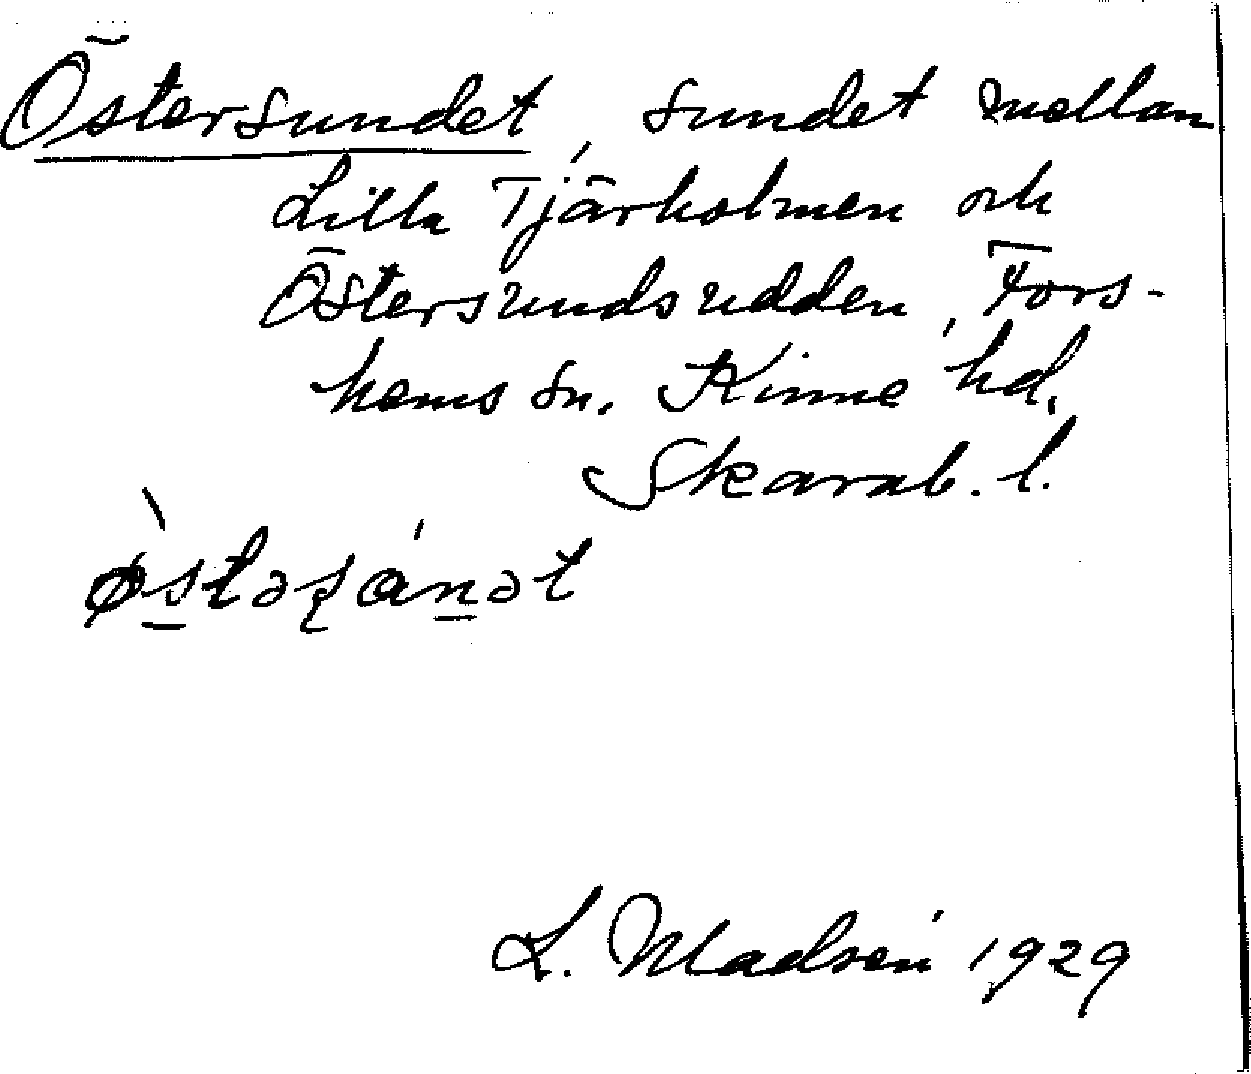 Östersundet, sundet mellan
Lilla Tjärholmen och
Östersundsudden, Fors-
hems sn. Kinne hd,
Skarab. l.
L. Madsen 1929